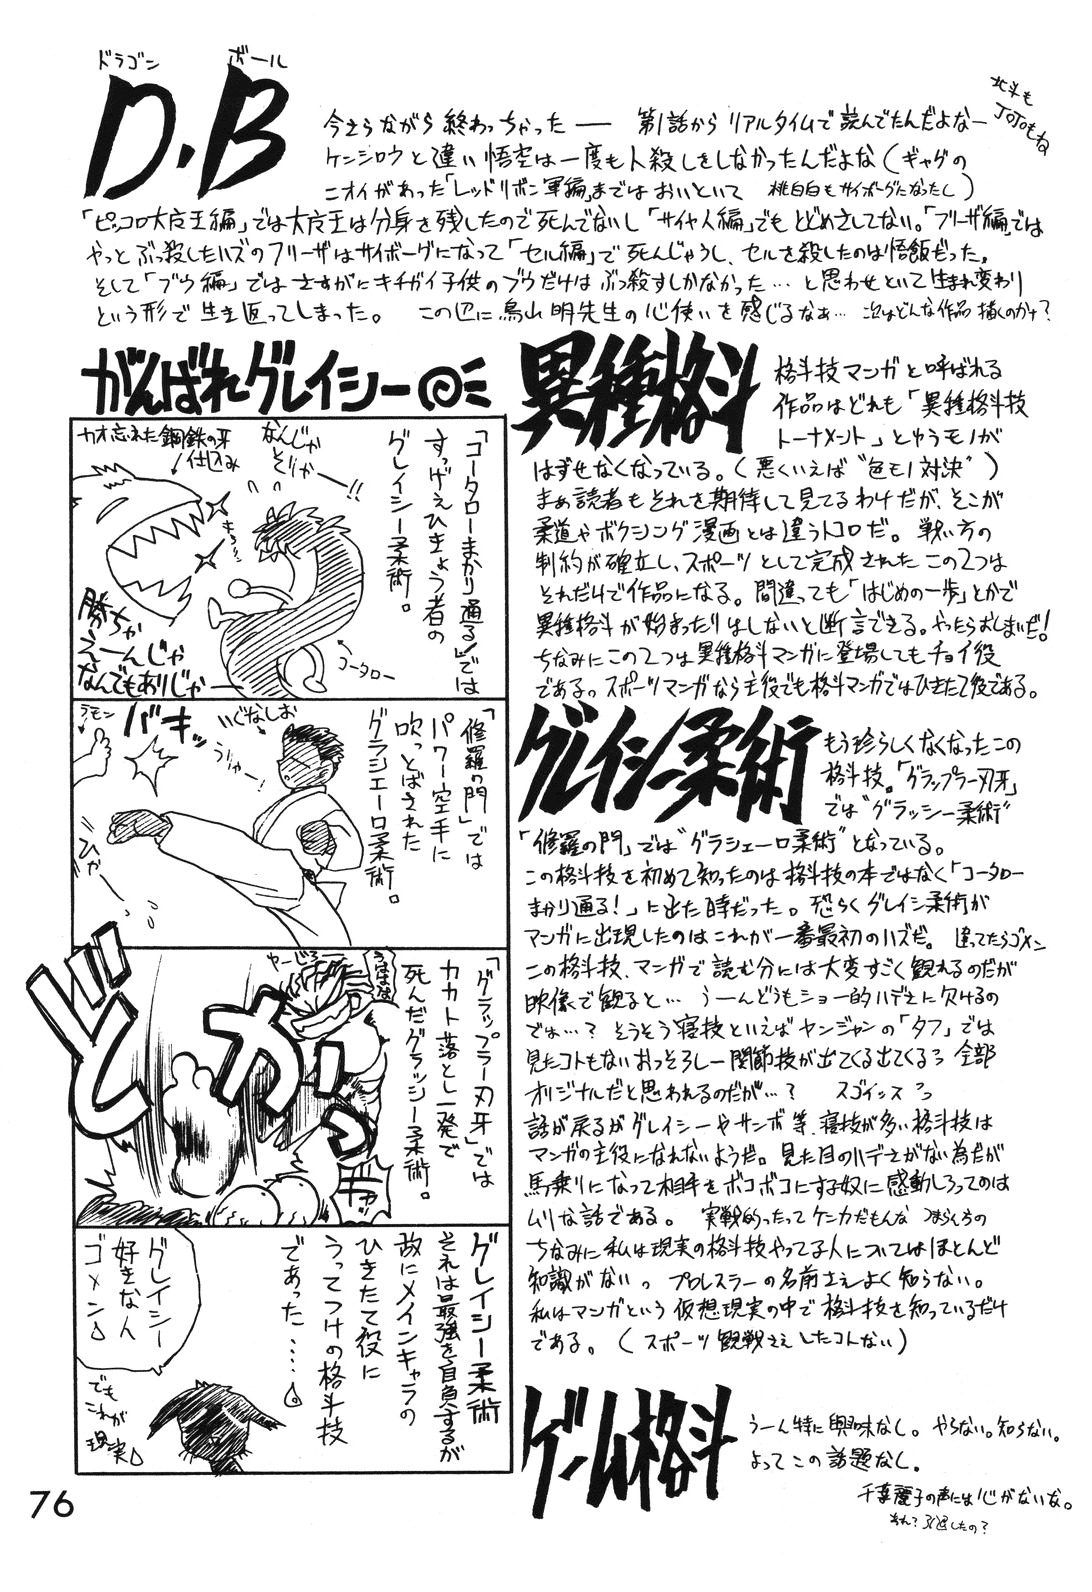 ドラゴン ボール
D.B
北斗も
JOJOもね
今さらながら終わっちゃった── 第1話からリアルタイムで読んでたんだよなー
ケンシロウと違い悟空は一度も人殺しをしなかったんだよな(ギャグの
ニオイがあった「レッドリボン軍編」まではおいといて 桃白白もサイボーグになったし)
「ピッコロ大魔王編」では大魔王は分身を残したので死んでないし「サイヤ人編」でもとどめさしてない。「フリーザ編」では
やっとぶっ殺したハズのフリーザはサイボーグになって「セル編」で死んじゃうし、セルを殺したのは悟飯だった。
そして「ブウ編」ではさすがにキチガイ子供のブウだけはぶっ殺すしかなかった…と思わせといて生まれ変わり
という形で生き返ってしまった。 この辺に鳥山明先生の心使いを感じるなぁ… 次はどんな作品描くのかナ?
がんばれグレイシー
「コータローまかり通る!」では
すっげえひきょう者の
グレイシー柔術。
カオ忘れた
鋼鉄の牙
仕込み
なんじゃ
そりゃー!!
キラリ
コータロー
勝ちゃ
えーんじゃ
なんでもありじゃー
「修羅の門」では
パワー空手に
吹っとばされた
グラシエーロ柔術。
ラモン
バキッ
いぐなしお
うりゃー!
ひゅー
「グラップラー刃牙」では
カカト落とし一発で
死んだグラッシー柔術。
やーじろー
うははは
どかっ
ギャッ
グレイシー柔術
それは最強を自負するが
故にメインキャラの
ひきたて役に
うってつけの格斗技
であった……。
グレイシー
好きなん
ゴメン
でも
これが
現実
異種格斗
格斗技マンガと呼ばれる
作品はどれも「異種格斗技
トーナメント」とゆうモノが
はずせなくなっている。(悪くいえば“色モノ対決”)
まぁ読者もそれを期待して見てるわけだが、そこが
柔道やボクシング漫画とは違うトコロだ。戦い方の
制約が確立し、スポーツとして完成されたこの2つは
それだけで作品になる。間違っても「はじめの一歩」とかで
異種格斗が始まったりはしないと断言できる。やったらおしまいだ!
ちなみにこの2つは異種格斗マンガに登場してもチョイ役
である。スポーツマンガなら主役でも格斗マンガではひきたて役である。
グレイシー柔術
もう珍らしくなくなったこの
格斗技。「グラップラー刃牙」
では“グラッシー柔術”
「修羅の門」では“グラシエーロ柔術”となっている。
この格斗技を初めて知ったのは格斗技の本ではなく「コータロー
まかり通る!」に出た時だった。恐らくグレイシー柔術が
マンガに出現したのはこれが一番最初のハズだ。違ってたらゴメン
この格斗技、マンガで読む分には大変すごく観れるのだが
映像で観ると… うーんどうもショー的ハデさに欠けるの
では…? そうそう寝技といえばヤンジャンの「タフ」では
見たコトもないおっそろしー関節技が出てくる出てくるっ 全部
オリジナルだと思われるのだが…? スゴインスっ
話が戻るがグレイシーやサンボ等、寝技が多い格斗技は
マンガの主役になれないようだ。見た目のハデさがない為だが
馬乗りになって相手をボコボコにする奴に感動しろってのは
ムリな話である。 実戦的ったってケンカだもんな
ちなみに私は現実の格斗技やってる人についてはほとんど
知識がない。 プロレスラーの名前さえよく知らない。
私はマンガという仮想現実の中で格斗技を知っているだけ
である。(スポーツ観戦さえしたコトない)
ゲーム格斗
うーん特に興味なし。やらない。知らない。
よってこの話題なし。
千葉麗子の声には心がないな。
あれ?引退したの?
76